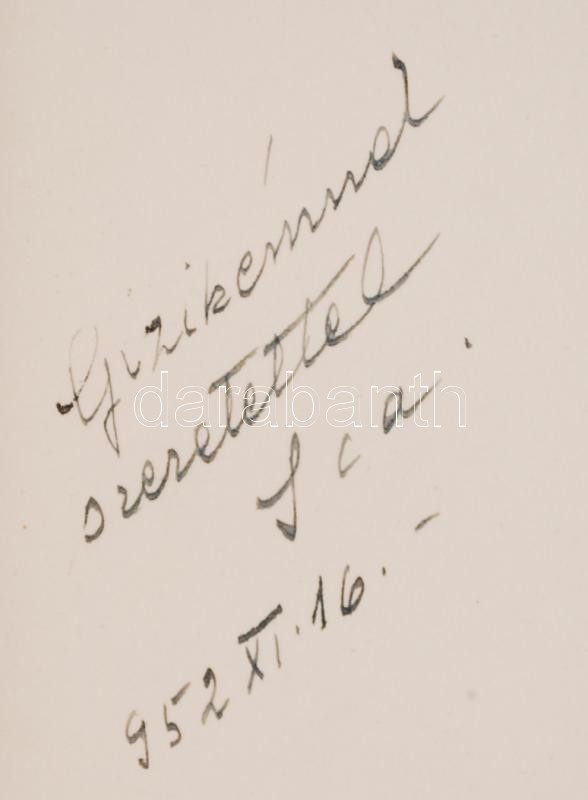 Gizikémnek
szeretettel
Ica.
952 XI. 16. –
darabanth